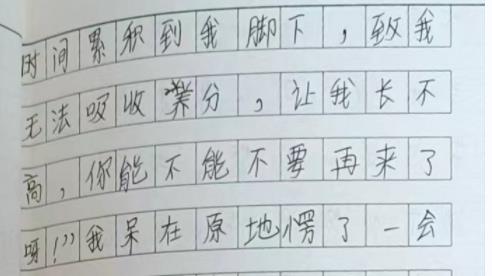 时间累积到我脚下，致我
无法吸收养分，让我长不
高，你能不能不要再来了
呀！”我呆在原地愣了一会